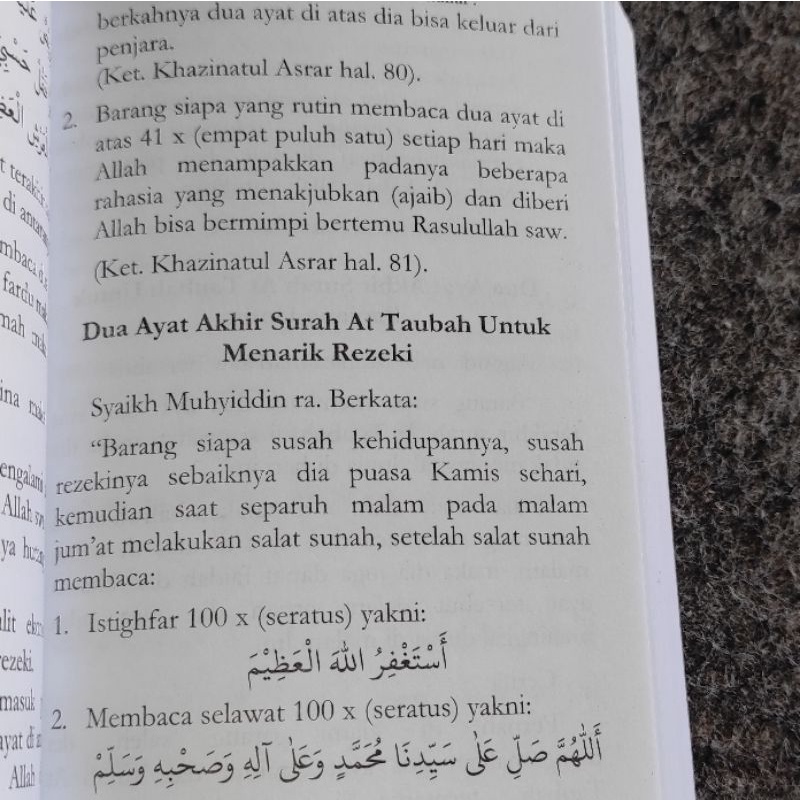 berkahnya dua ayat di atas dia bisa keluar dari
penjara.
(Ket. Khazinatul Asrar hal. 80).
2. Barang siapa yang rutin membaca dua ayat di
atas 41 x (empat puluh satu) setiap hari maka
Allah menampakkan padanya beberapa
rahasia yang menakjubkan (ajaib) dan diberi
Allah bisa bermimpi bertemu Rasulullah saw.
(Ket. Khazinatul Asrar hal. 81).
Dua Ayat Akhir Surah At Taubah Untuk
Menarik Rezeki
Syaikh Muhyiddin ra. Berkata:
“Barang siapa susah kehidupannya, susah
rezekinya sebaiknya dia puasa Kamis sehari,
kemudian saat separuh malam pada malam
jum’at melakukan salat sunah, setelah salat sunah
membaca:
1. Istighfar 100 x (seratus) yakni:
أَسْتَغْفِرُ اللهَ الْعَظِيْمَ
2. Membaca selawat 100 x (seratus) yakni:
أَللّٰهُمَّ صَلِّ عَلٰى سَيِّدِنَا مُحَمَّدٍ وَعَلٰى آلِهِ وَصَحْبِهِ وَسَلِّمْ